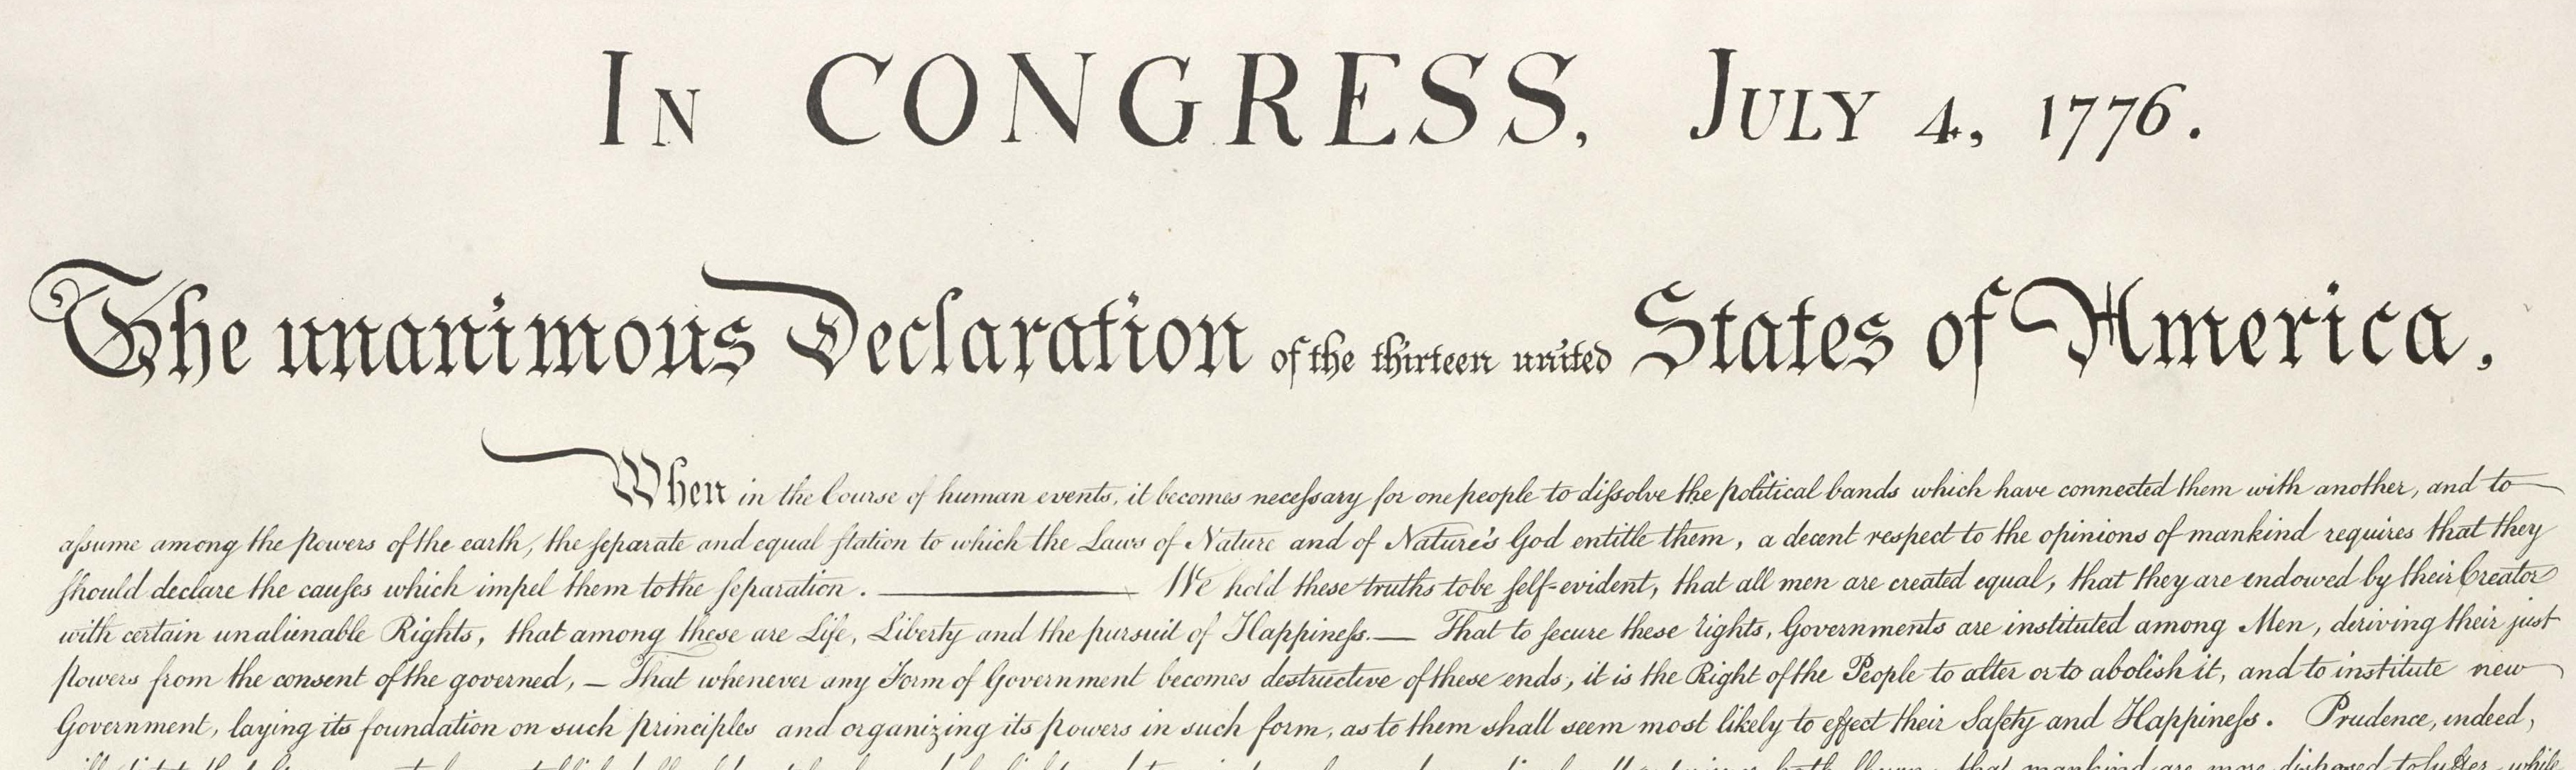 In CONGRESS, July 4, 1776.
The unanimous Declaration of the thirteen united States of America,
When in the Course of human events, it becomes necessary for one people to dissolve the political bands which have connected them with another, and to
assume among the powers of the earth, the separate and equal station to which the Laws of Nature and of Nature's God entitle them, a decent respect to the opinions of mankind requires that they
should declare the causes which impel them to the separation. — We hold these truths to be self-evident, that all men are created equal, that they are endowed by their Creator
with certain unalienable Rights, that among these are Life, Liberty and the pursuit of Happiness.— That to secure these rights, Governments are instituted among Men, deriving their just
powers from the consent of the governed, — That whenever any Form of Government becomes destructive of these ends, it is the Right of the People to alter or to abolish it, and to institute new
Government, laying its foundation on such principles and organizing its powers in such form, as to them shall seem most likely to effect their Safety and Happiness. Prudence, indeed,
that mankind are more disposed to suffer, while